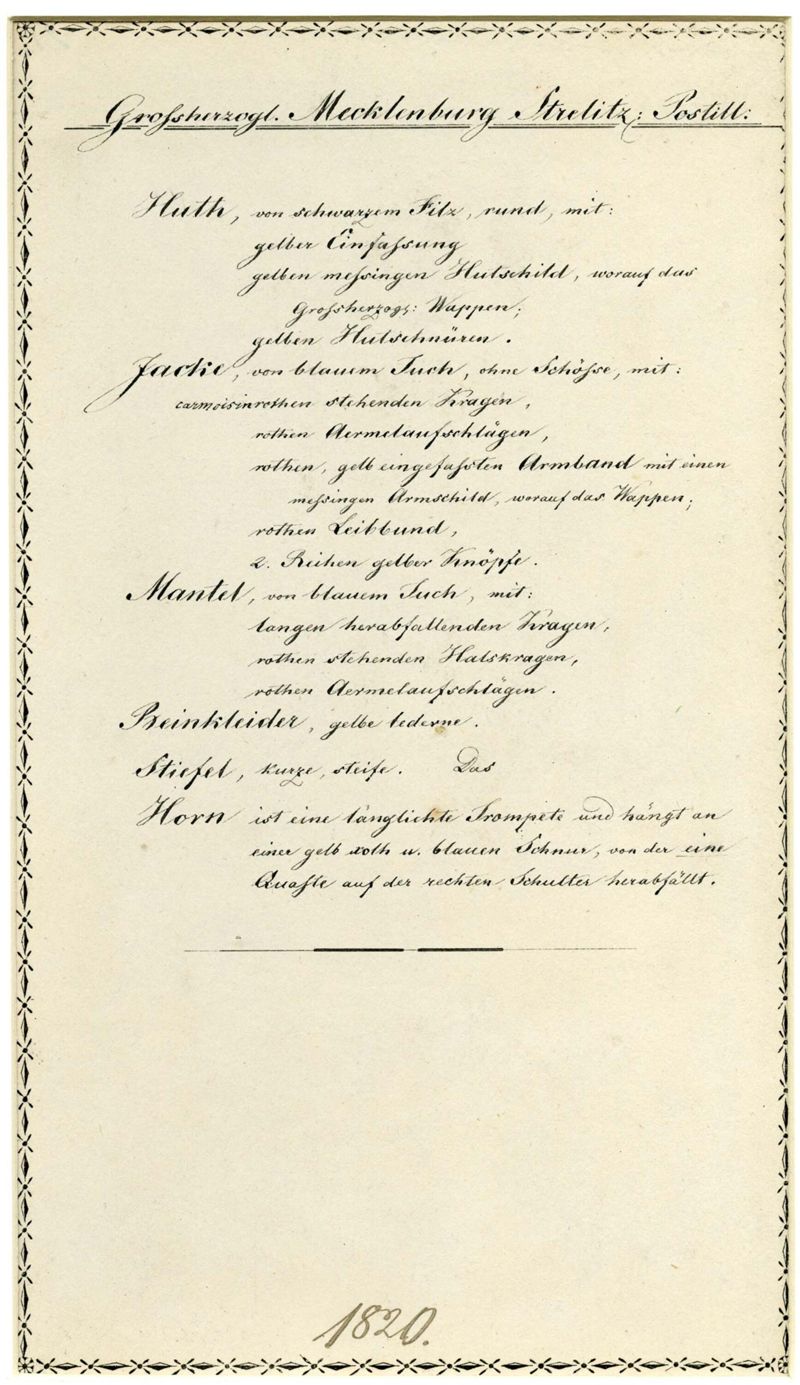 Großherzogl. Mecklenburg Strelitz: Postill:
Huth, von schwarzem Filz, rund, mit:
gelber Einfaßung
gelben meßingen Hutschild, worauf das
Großherzogl: Wappen;
gelben Hutschnüren.
Jacke, von blauem Tuch, ohne Schöße, mit:
carmoisinrothen stehenden Kragen,
rothen Aermelaufschlägen,
rothen, gelb eingefaßten Armband mit einen
meßingen Armschild, worauf das Wappen;
rothen Leibbund,
2. Reihen gelber Knöpfe.
Mantel, von blauem Tuch, mit:
langen herabfallenden Kragen,
rothen stehenden Halskragen,
rothen Aermelaufschlägen.
Beinkleider, gelbe lederne.
Stiefel, kurze, steife. Das
Horn ist eine länglichte Trompete und hängt an
einer gelb roth u. blauen Schnur, von der eine
Quaste auf der rechten Schulter herabfällt.
1820.